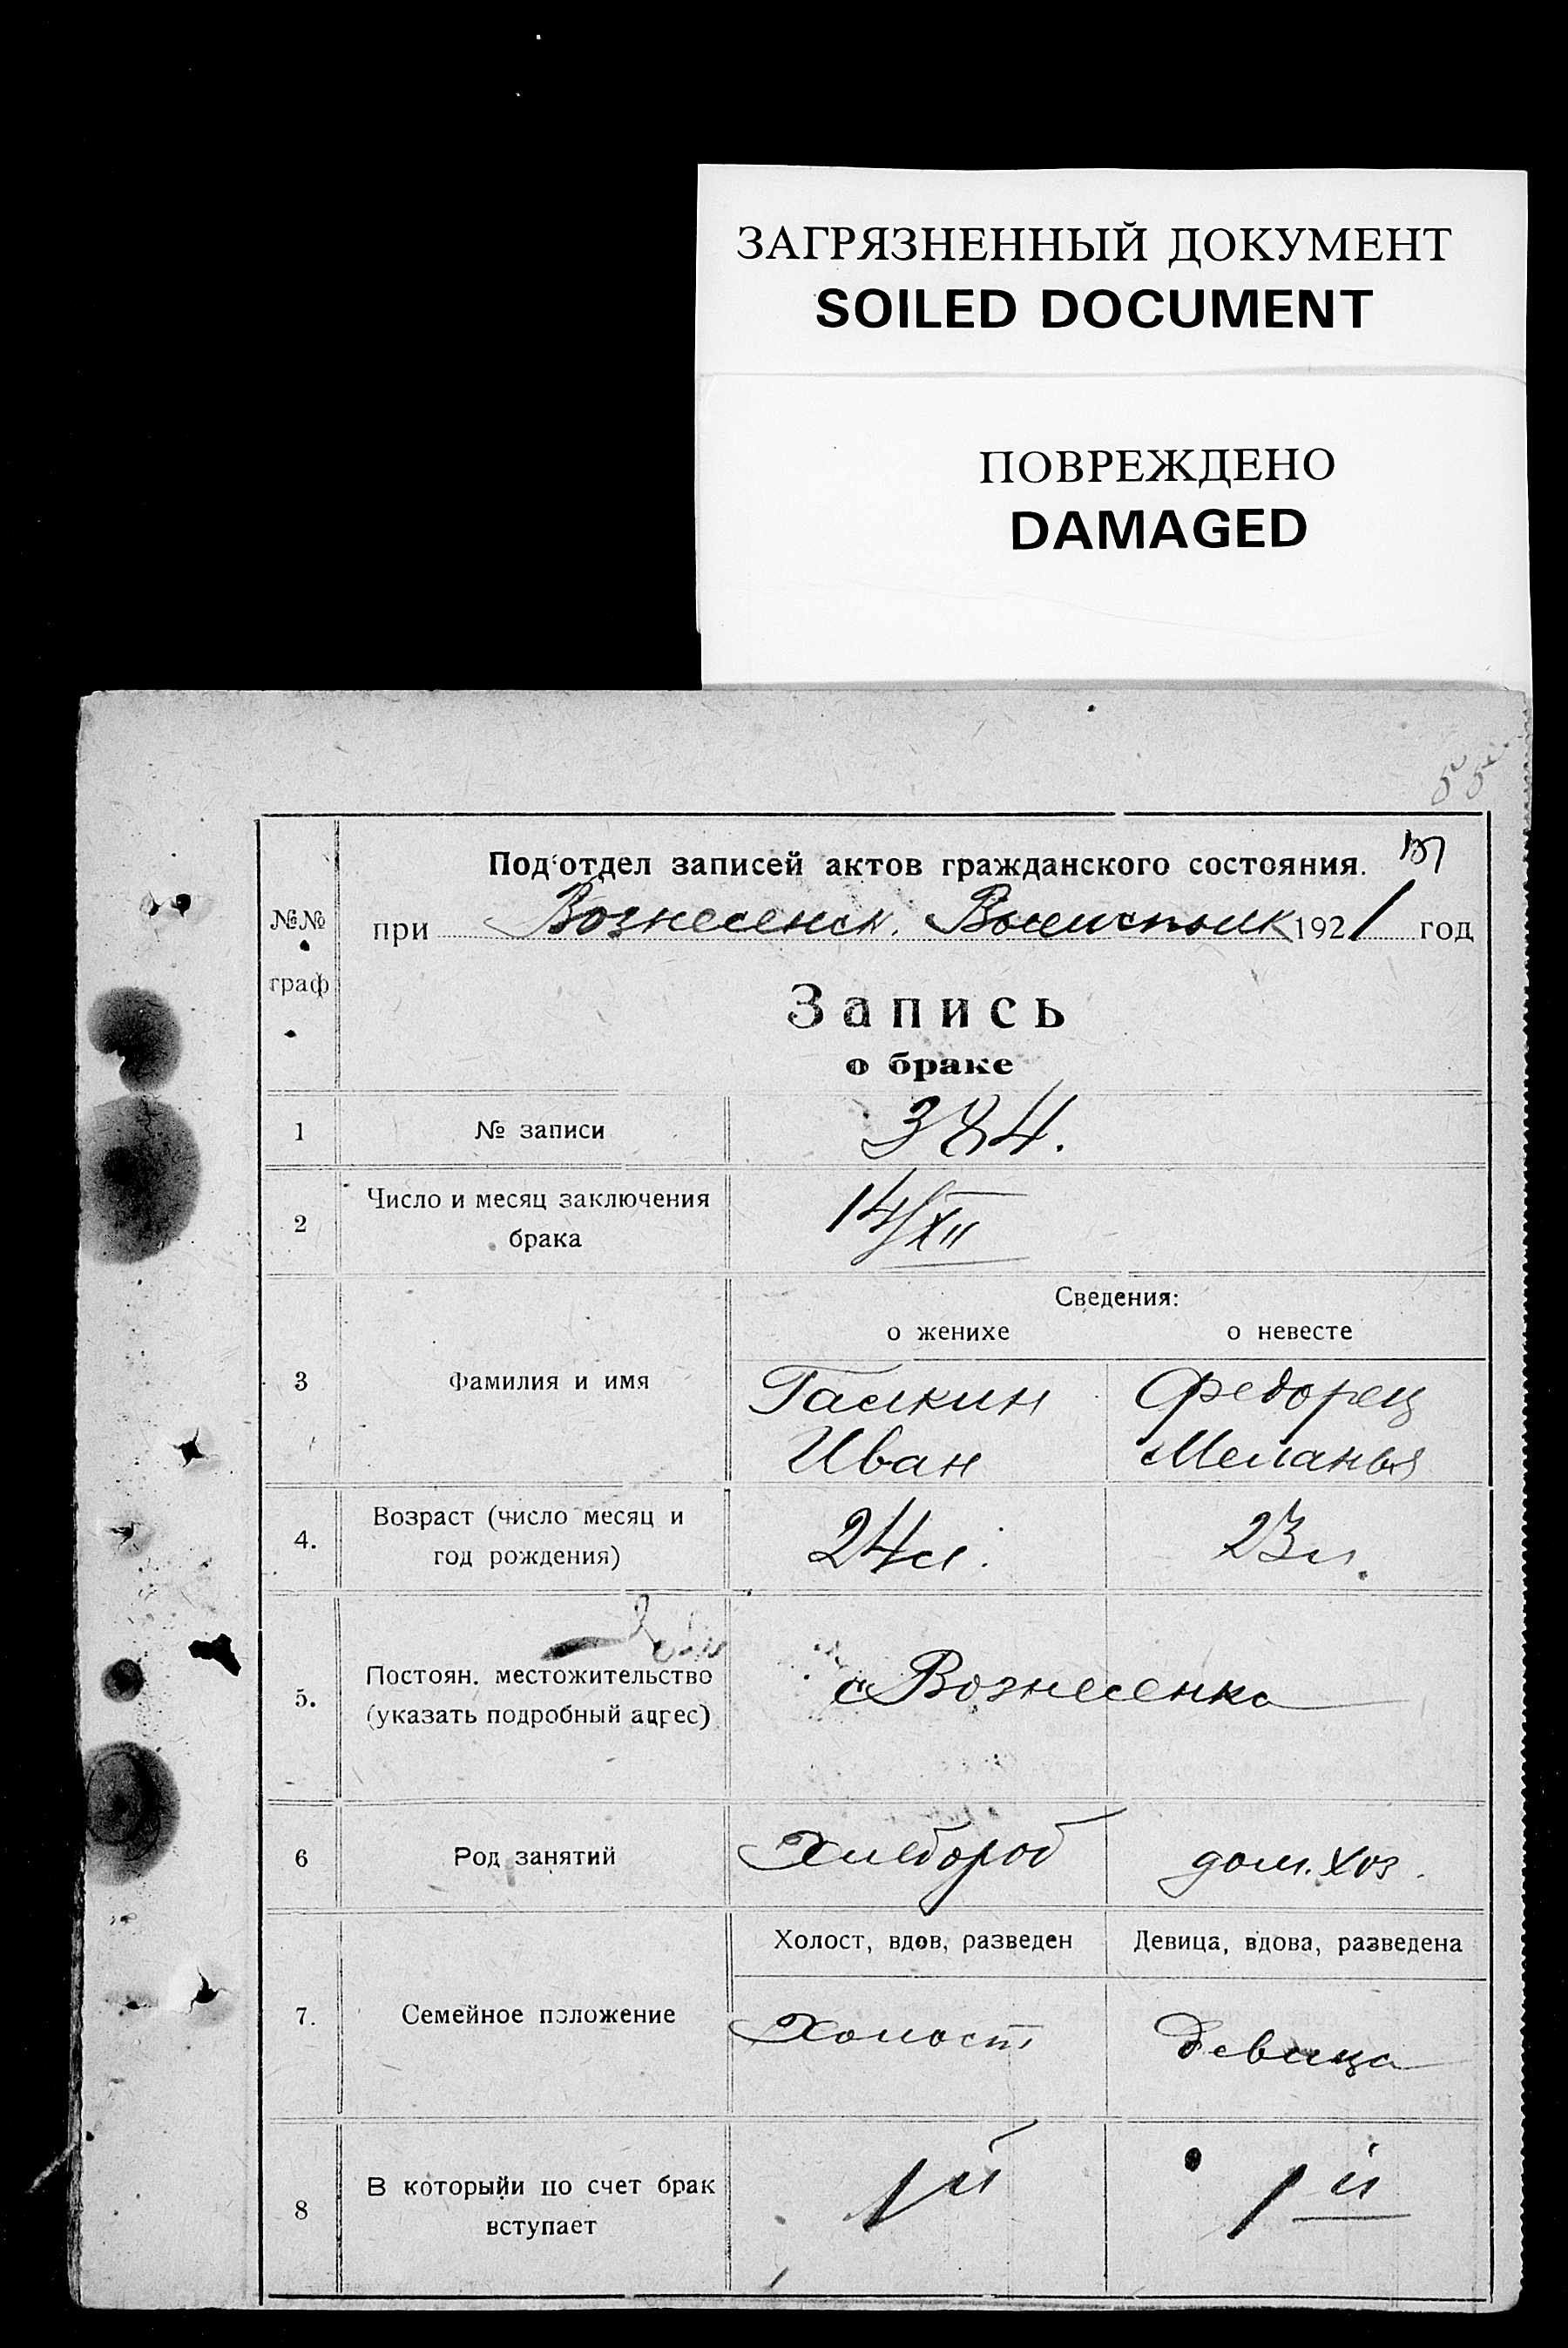 ЗАГРЯЗНЕННЫЙ ДОКУМЕНТ
SOILED DOCUMENT
ПОВРЕЖДЕНО
DAMAGED
№№ граф
Под'отдел записей актов гражданского состояния.
при Вознесенск. Волисполк 1921 год
Запись
о браке
1 № записи 384.
2 Число и месяц заключения
брака 14/XII
Сведения:
о женихе о невесте
3 Фамилия и имя Галкин Федорец
Иван Меланья
4. Возраст (число месяц и
год рождения) 24 л. 23 л.
5. Постоян. местожительство
(указать подробный адрес) с Вознесенка
6 Род занятий Хлебороб дом. хоз.
Холост, вдов, разведен Девица, вдова, разведена
7. Семейное положение Холост девица
8 В которыйи по счет брак
вступает 1й 1й